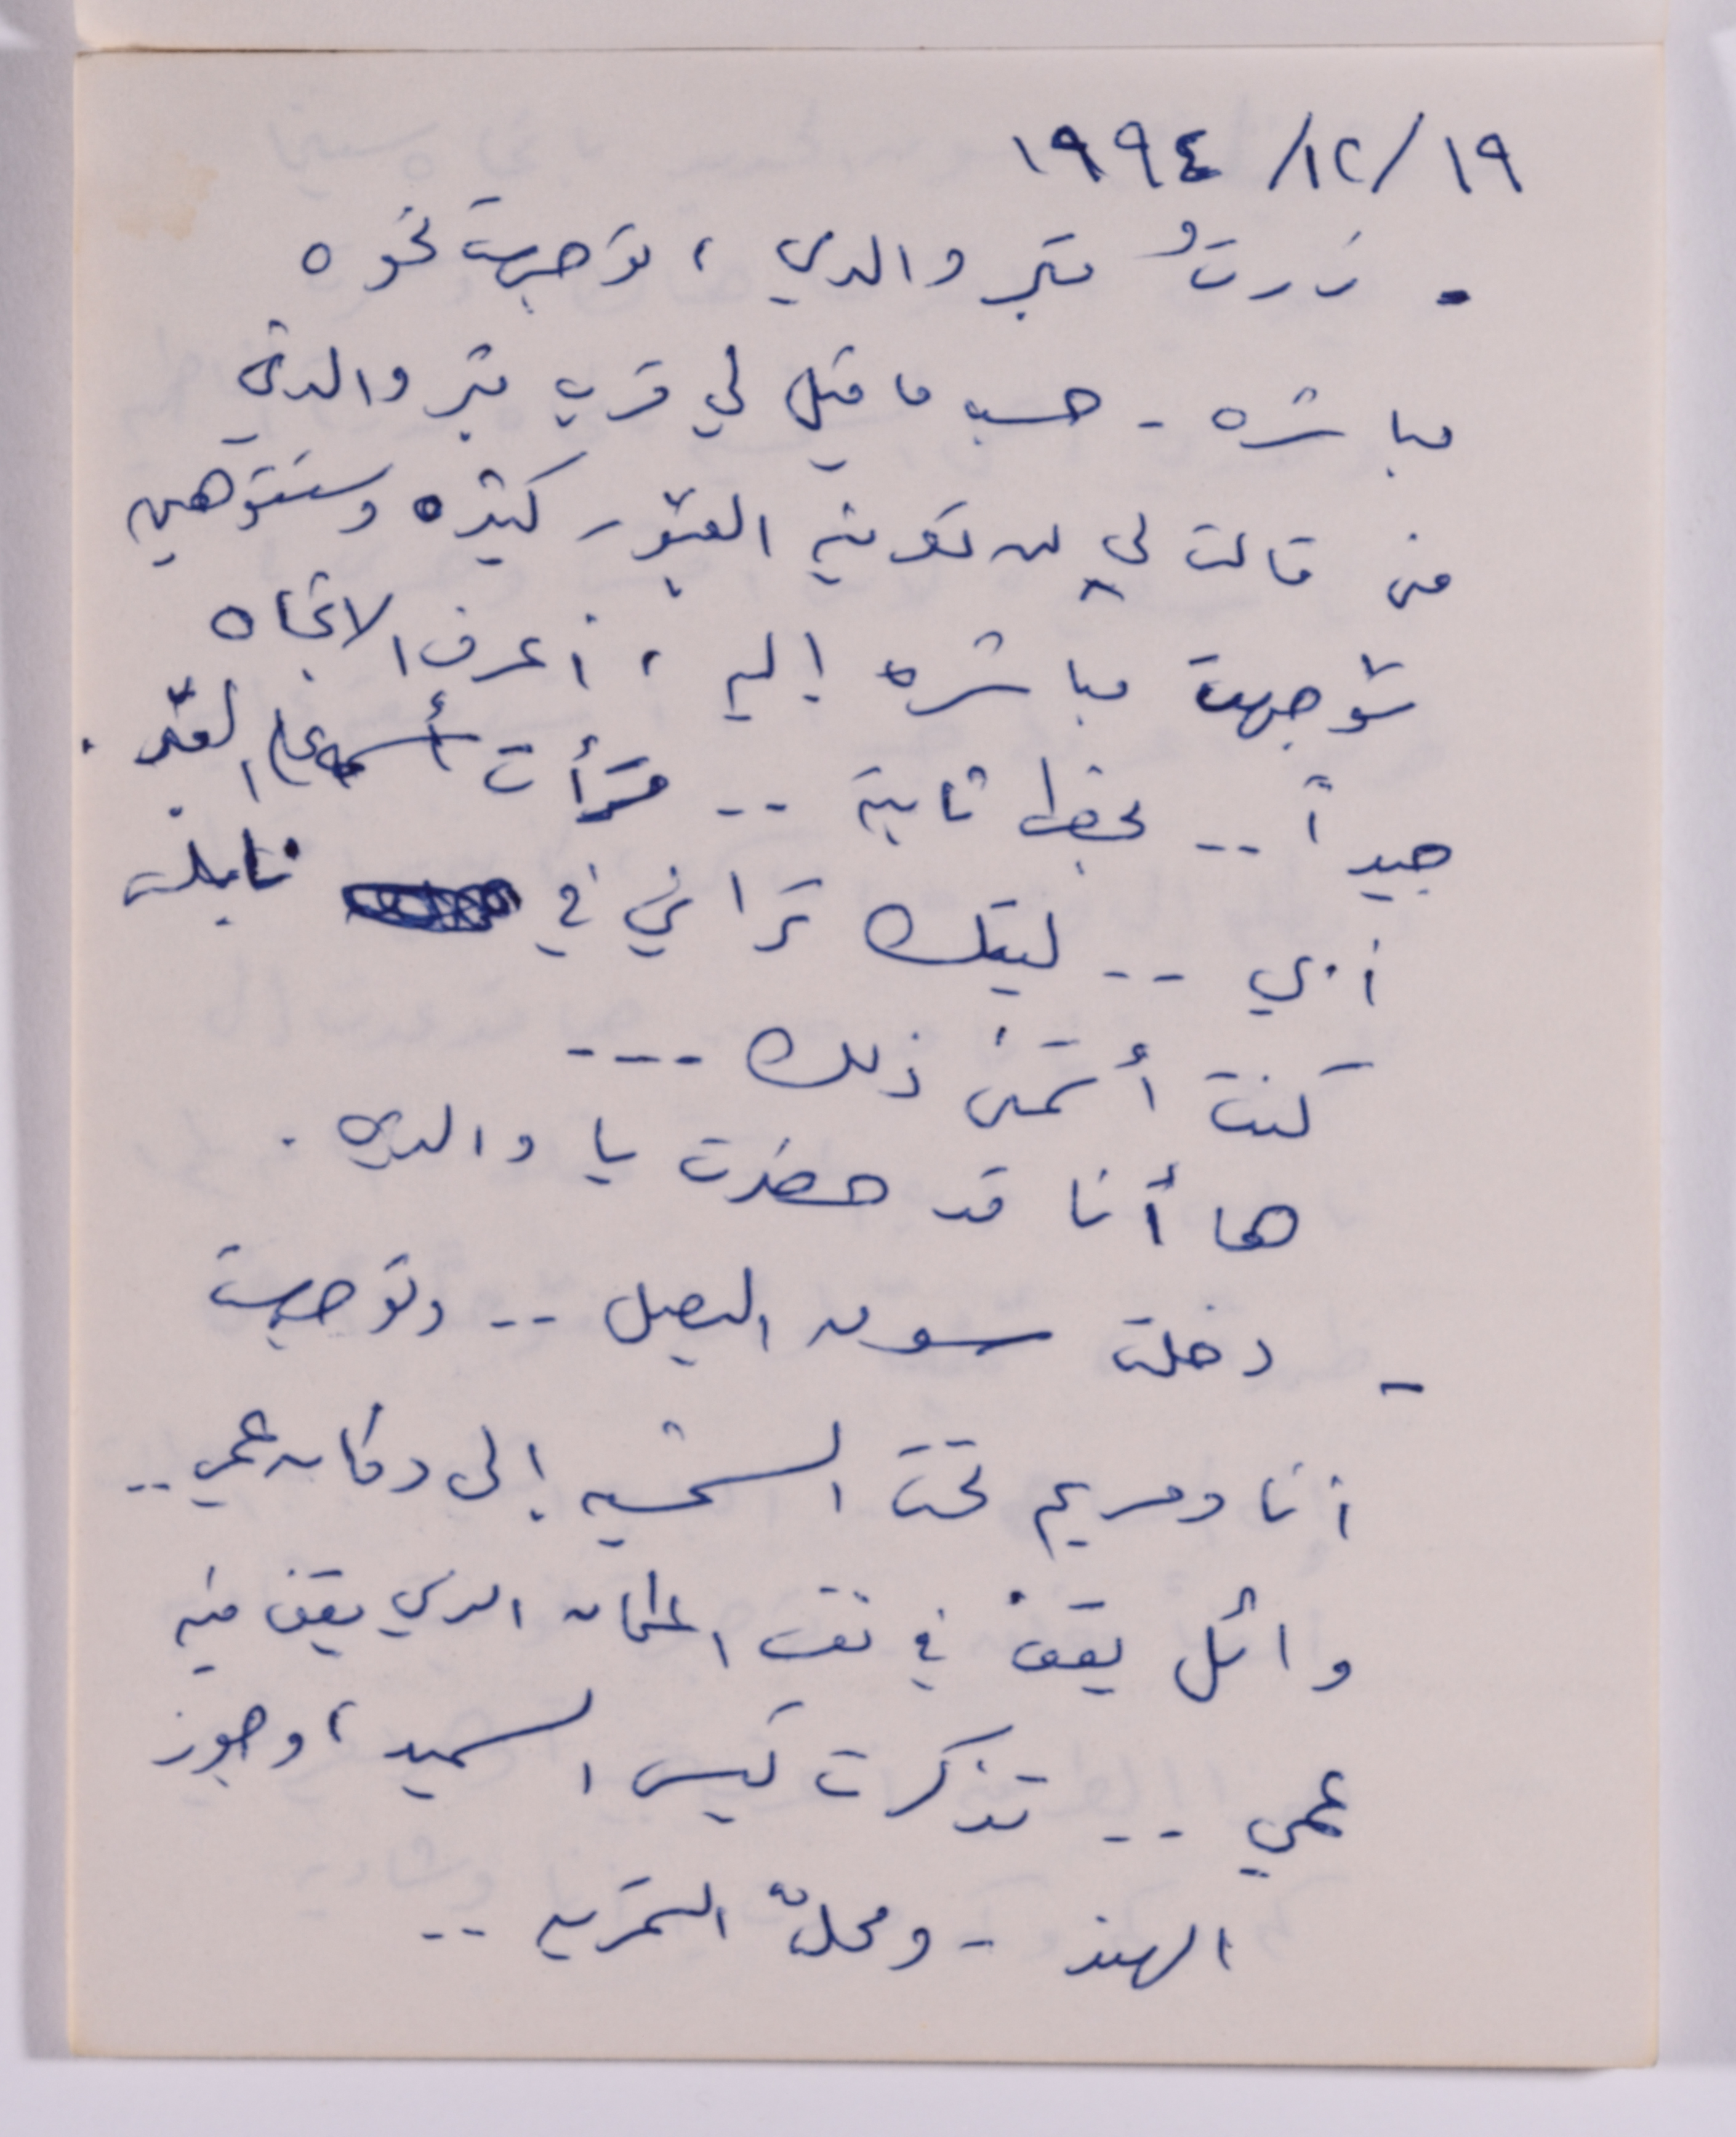 ١٩/ ١٢/ ١٩٩٤
- زرتُ قبر والدي ، توجهت نحوه
مباشره - حسب ما قيل لي قرب قبر والدتي
منى قالت لي لن تعرفيه القبور كثيره وستتوهين
توجهت مباشره إليه ، أعرف الاتجاه
جيداً .. بخطى ثابتة .. قرأت أسمه على القبر .
أبي .. ليتك تراني في نابلس
كنت أتمنى ذلك ---
ها أنا قد حضرت يا والدي .
- دخلت سوق البصل .. وتوجهت
أنا ومريم تحت الشمسيه إلى دكان عمي ..
وائل يقف في نفس المكان الذي يقف فيه
عمي .. تذكرت كيس السميد ، وجوز
الهند - ومحلّ التمرين ..